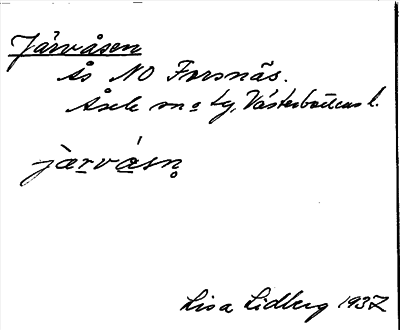 Järvåsen
Ås NO Forsnäs.
Åsele sn o tg, Västerbottens l.
jàrvásn̥
Lisa Lidberg 1937